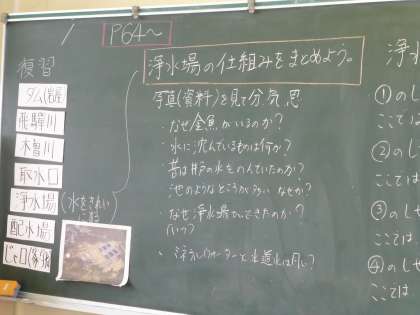 P64～
浄水場の仕組みをまとめよう。
復習
ダム(岩屋
飛騨川
木曽川
取水口
浄水場 (水をきれいにする
配水場
じゃ口(家・学校
写真(資料)を見て 分 気 思
・なぜ金魚がいるのか？
・水に沈んでいるものは何か？
・昔は井戸の水をのんでいたのか？
池のようなところが多い なぜか？
・なぜ浄水場ができたのか？
(いつ)
と水道水は同じ？
浄
①のし
ここでは
②のし
ここでは
③のし
ここでは
④のし
ここでは